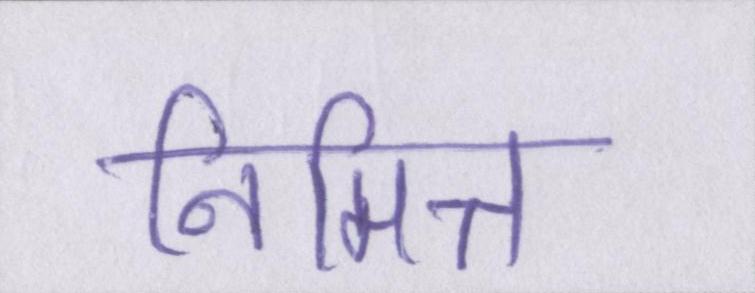 निमित्त